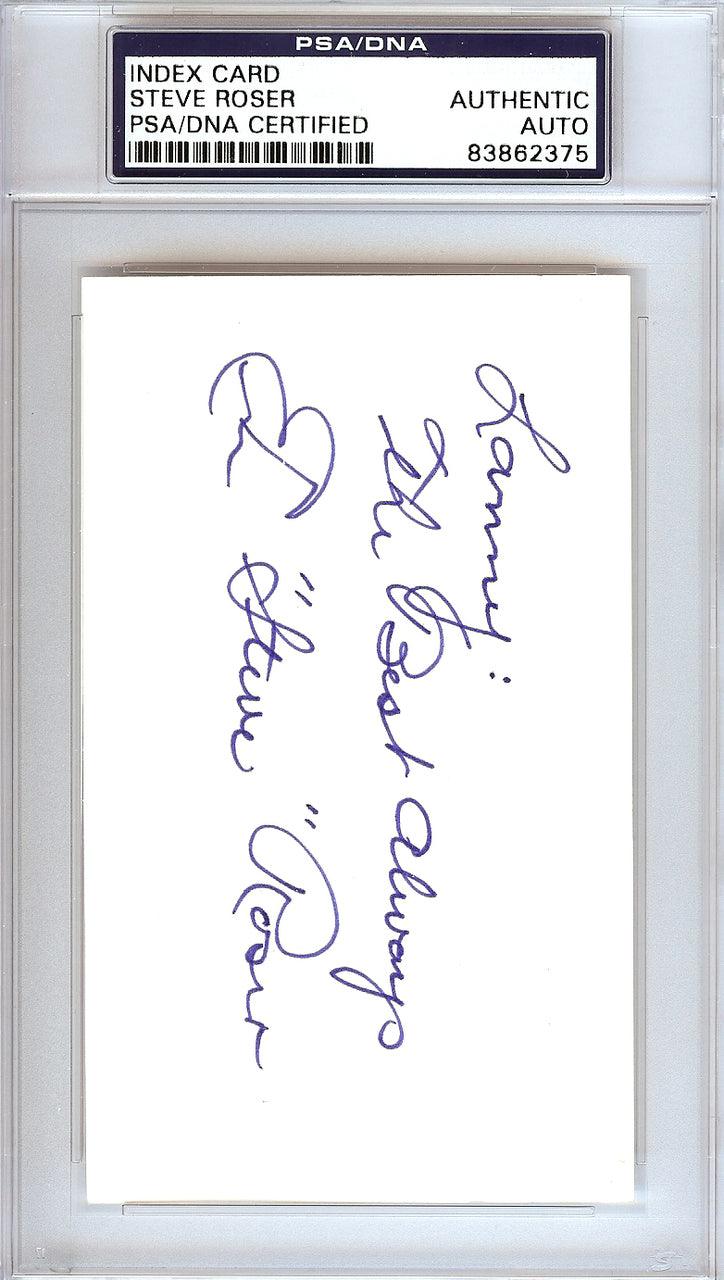 PSA/DNA
INDEX CARD
STEVE ROSER AUTHENTIC
PSA/DNA CERTIFIED AUTO
83862375
Lanny:
The Best Always
"Steve" Roser